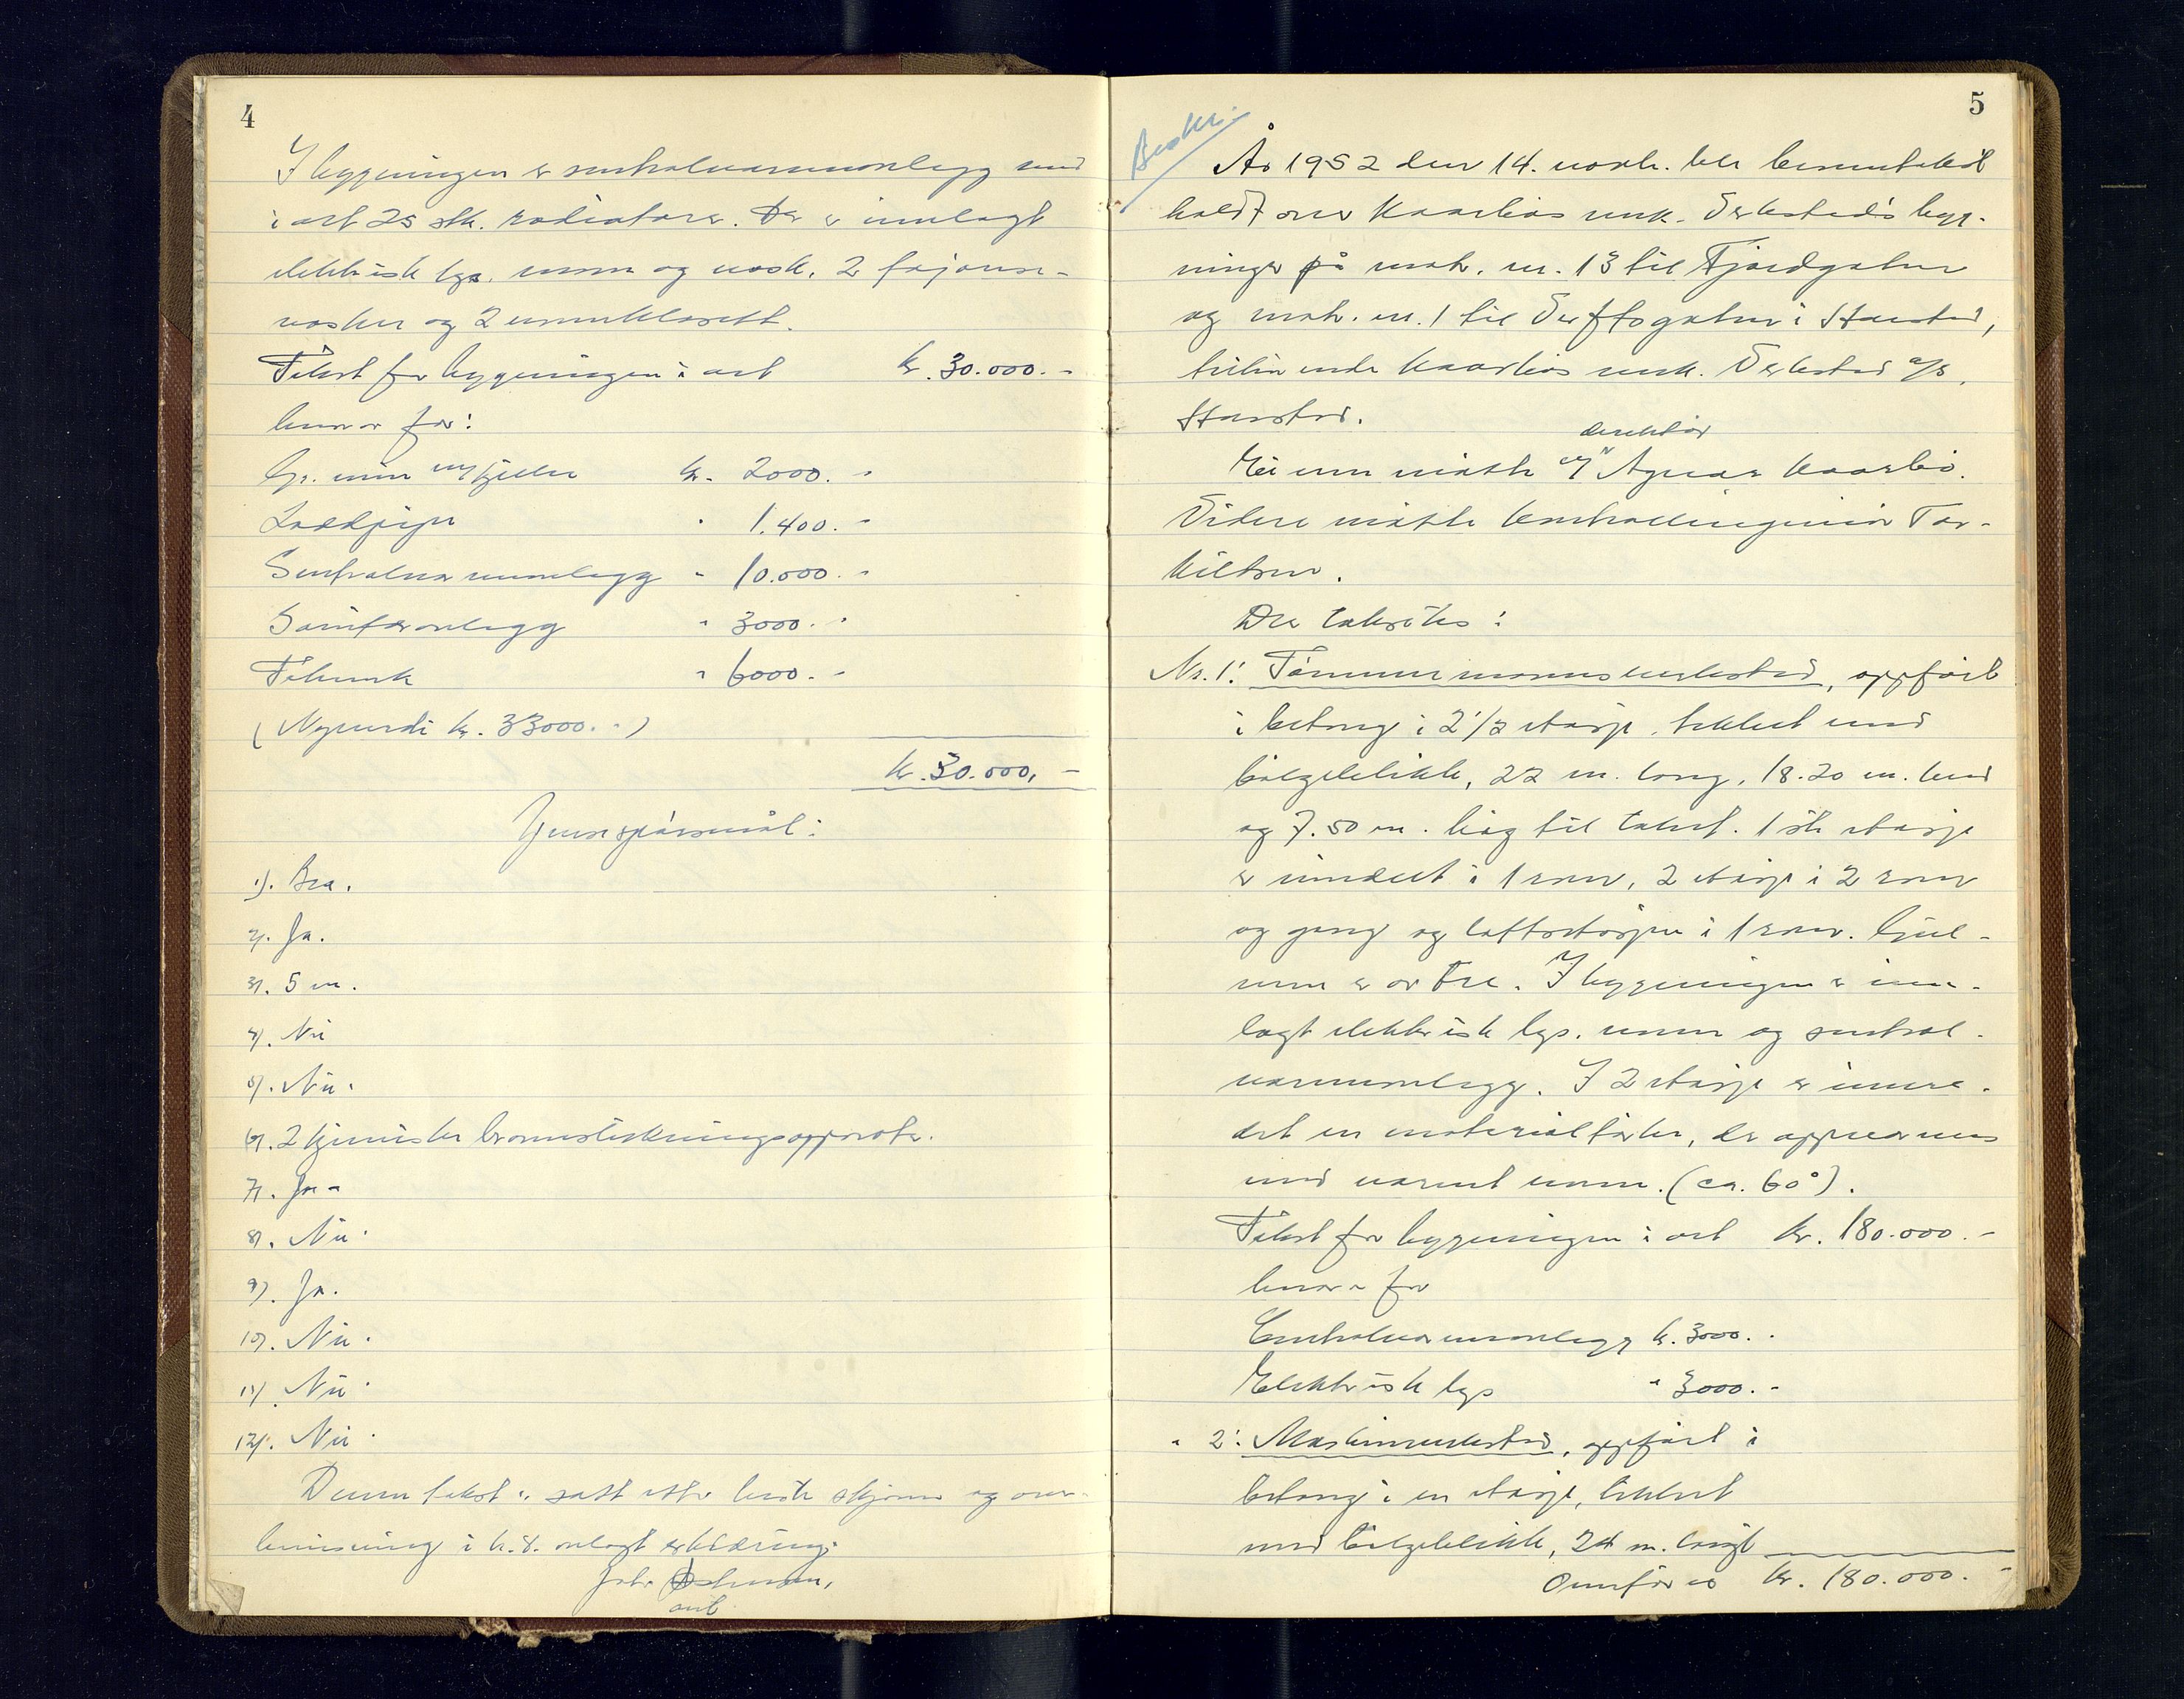 4
I bygningen er sentralvarmeanlegg med
i alt 25 stk. radiatorer. Der er innlagt
elektrisk lys, vann og vask, 2 fajanse-
vasker og 2 vannklosett.
Takst for bygningen i alt kr. 30.000.-
herav for:
Gr. mur m/kjeller kr. 2000.-
Loddpipe " 1.400.-
Sentralvarmeanlegg " 10.000.-
Sanitæranlegg " 3000.-
Tilverk " 6000.-
(Nyverdi kr. 33000.-)
kr. 30.000,-
Brannspørsmål:
1). Bra.
2). Ja.
3). 5 m.
4). Nei
5). Nei.
6). 2 kjemiske brannslukningsapparater.
7). Ja-
8). Nei.
9). Ja.
10). Nei.
11). Nei.
12). Nei.
Denne takst er satt etter beste skjønn og over-
bevisning i h.t. avlagt erklæring.
Johs
5
År 1952 den 14. novbr. ble branntakst
holdt over Kaarbøs mek. Verksteds byg-
ninger på matr. nr. 13 til Fjordgaten
og matr. nr. 1 til Verftsgaten i Harstad,
tilhørende Kaarbøs mek. Verksted a/s,
Harstad.
direktør
Eieren møtte v/ Agnar Kaarbø.
Videre møtte kontrollingeniør Tor-
kildsen.
Der taksertes:
Nr. 1: Tømmermannsverksted, oppført
i betong i 2 1/2 etasje, tekket med
bølgeblikk, 22 m. lang, 18.20 m. bred
og 7.50 m. høg til takset. 1ste etasje
er inndelt i 1 rom, 2 etasje i 2 rom
og gang og loftsetasjen i 1 rom. Gul-
vene er av tre. I bygningen er inn-
lagt elektrisk lys, vann og sentral-
varmeanlegg. I 2 etasje er innre-
det en materialtørke, der oppvarmes
med varmt vann. (ca. 60°).
Takst for bygningen i alt kr. 180.000.-
herav for
Centralvarmeanlegg kr. 3000.-
Elektrisk lys " 3000.-
" 2: Maskinverksted, oppført i
betong i en etasje, tekket
med bølgeblikk, 24 m. langt
Overføres kr. 180.000.-